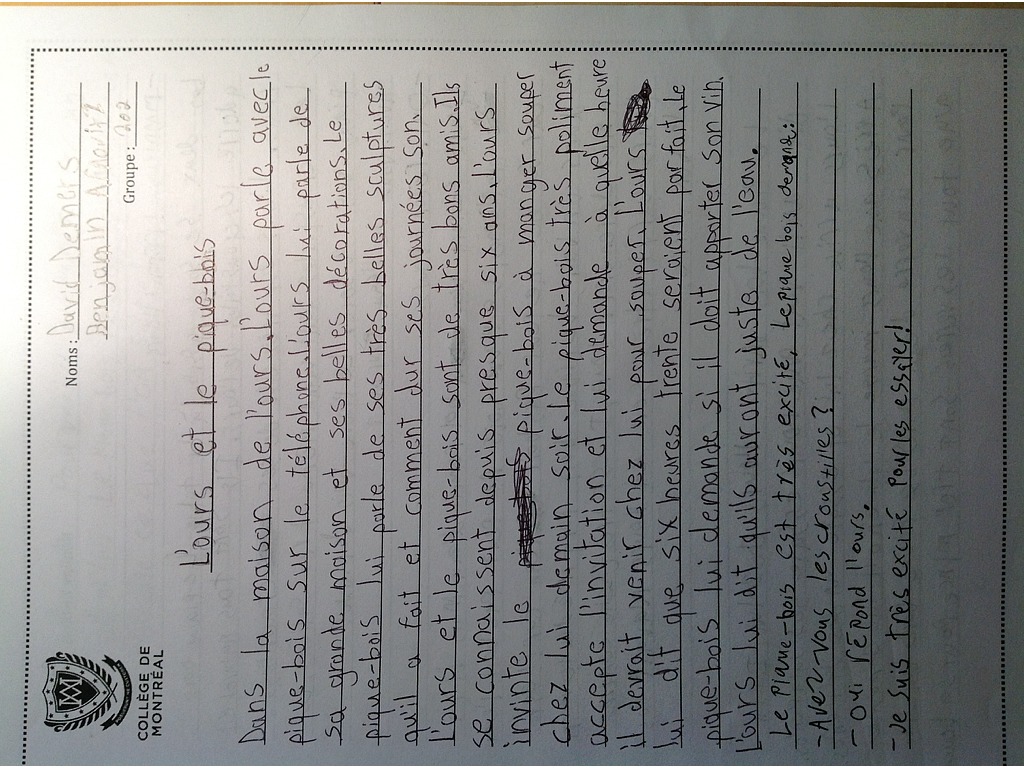 COLLÈGE DE
MONTRÉAL
Noms : David Demers
Benjamin
Groupe : 202
L'ours et le pique-bois
Dans la maison de l'ours, l'ours parle avec le
pique-bois sur le téléphone. l'ours lui parle de
sa grande maison et ses belles décorations. Le
pique-bois lui parle de ses très belles sculptures
qu'il a fait et comment dur ses journées son.
L'ours et le pique-bois sont de très bons amis. Ils
se connaissent depuis presque six ans. l'ours
invinte le pique-bois à manger souper
chez lui demain soir. le pique-bois très poliment
accepte l'invitation et lui demande à quelle heure
il devrait venir chez lui pour souper. l'ours
lui dit que six heures trente seraient parfait. Le
pique-bois lui demande si il doit apporter son vin.
L'ours lui dit qu'ils auront juste de l'eau.
Le Pique-bois est très excité, Le pique bois demande:
- Avez-vous les croustilles?
- oui répond l'ours.
- Je suis très excité pour les essaier!